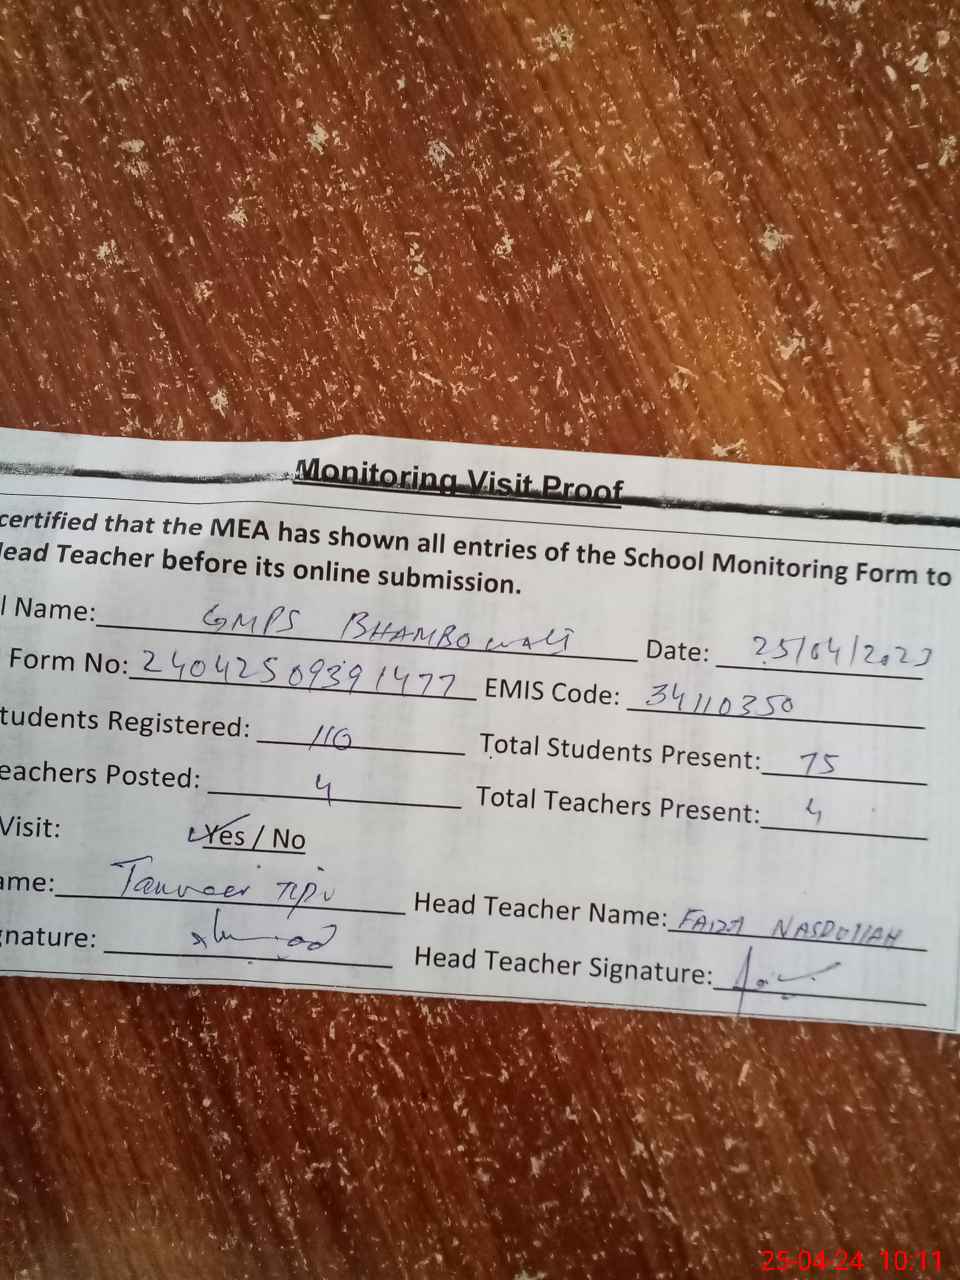 Monitoring Visit Proof
certified that the MEA has shown all entries of the School Monitoring Form to
lead Teacher before its online submission.
l Name: GMPS BHAMBOWALI Date: 25/04/2023
Form No: 24042509391477 EMIS Code: 34110350
tudents Registered: 110 Total Students Present: 75
eachers Posted: 4 Total Teachers Present: 4
Visit: Yes / No
ame: Tanveer Tipu Head Teacher Name: FAIZA
gnature: Head Teacher Signature:
25-04-24 10:11